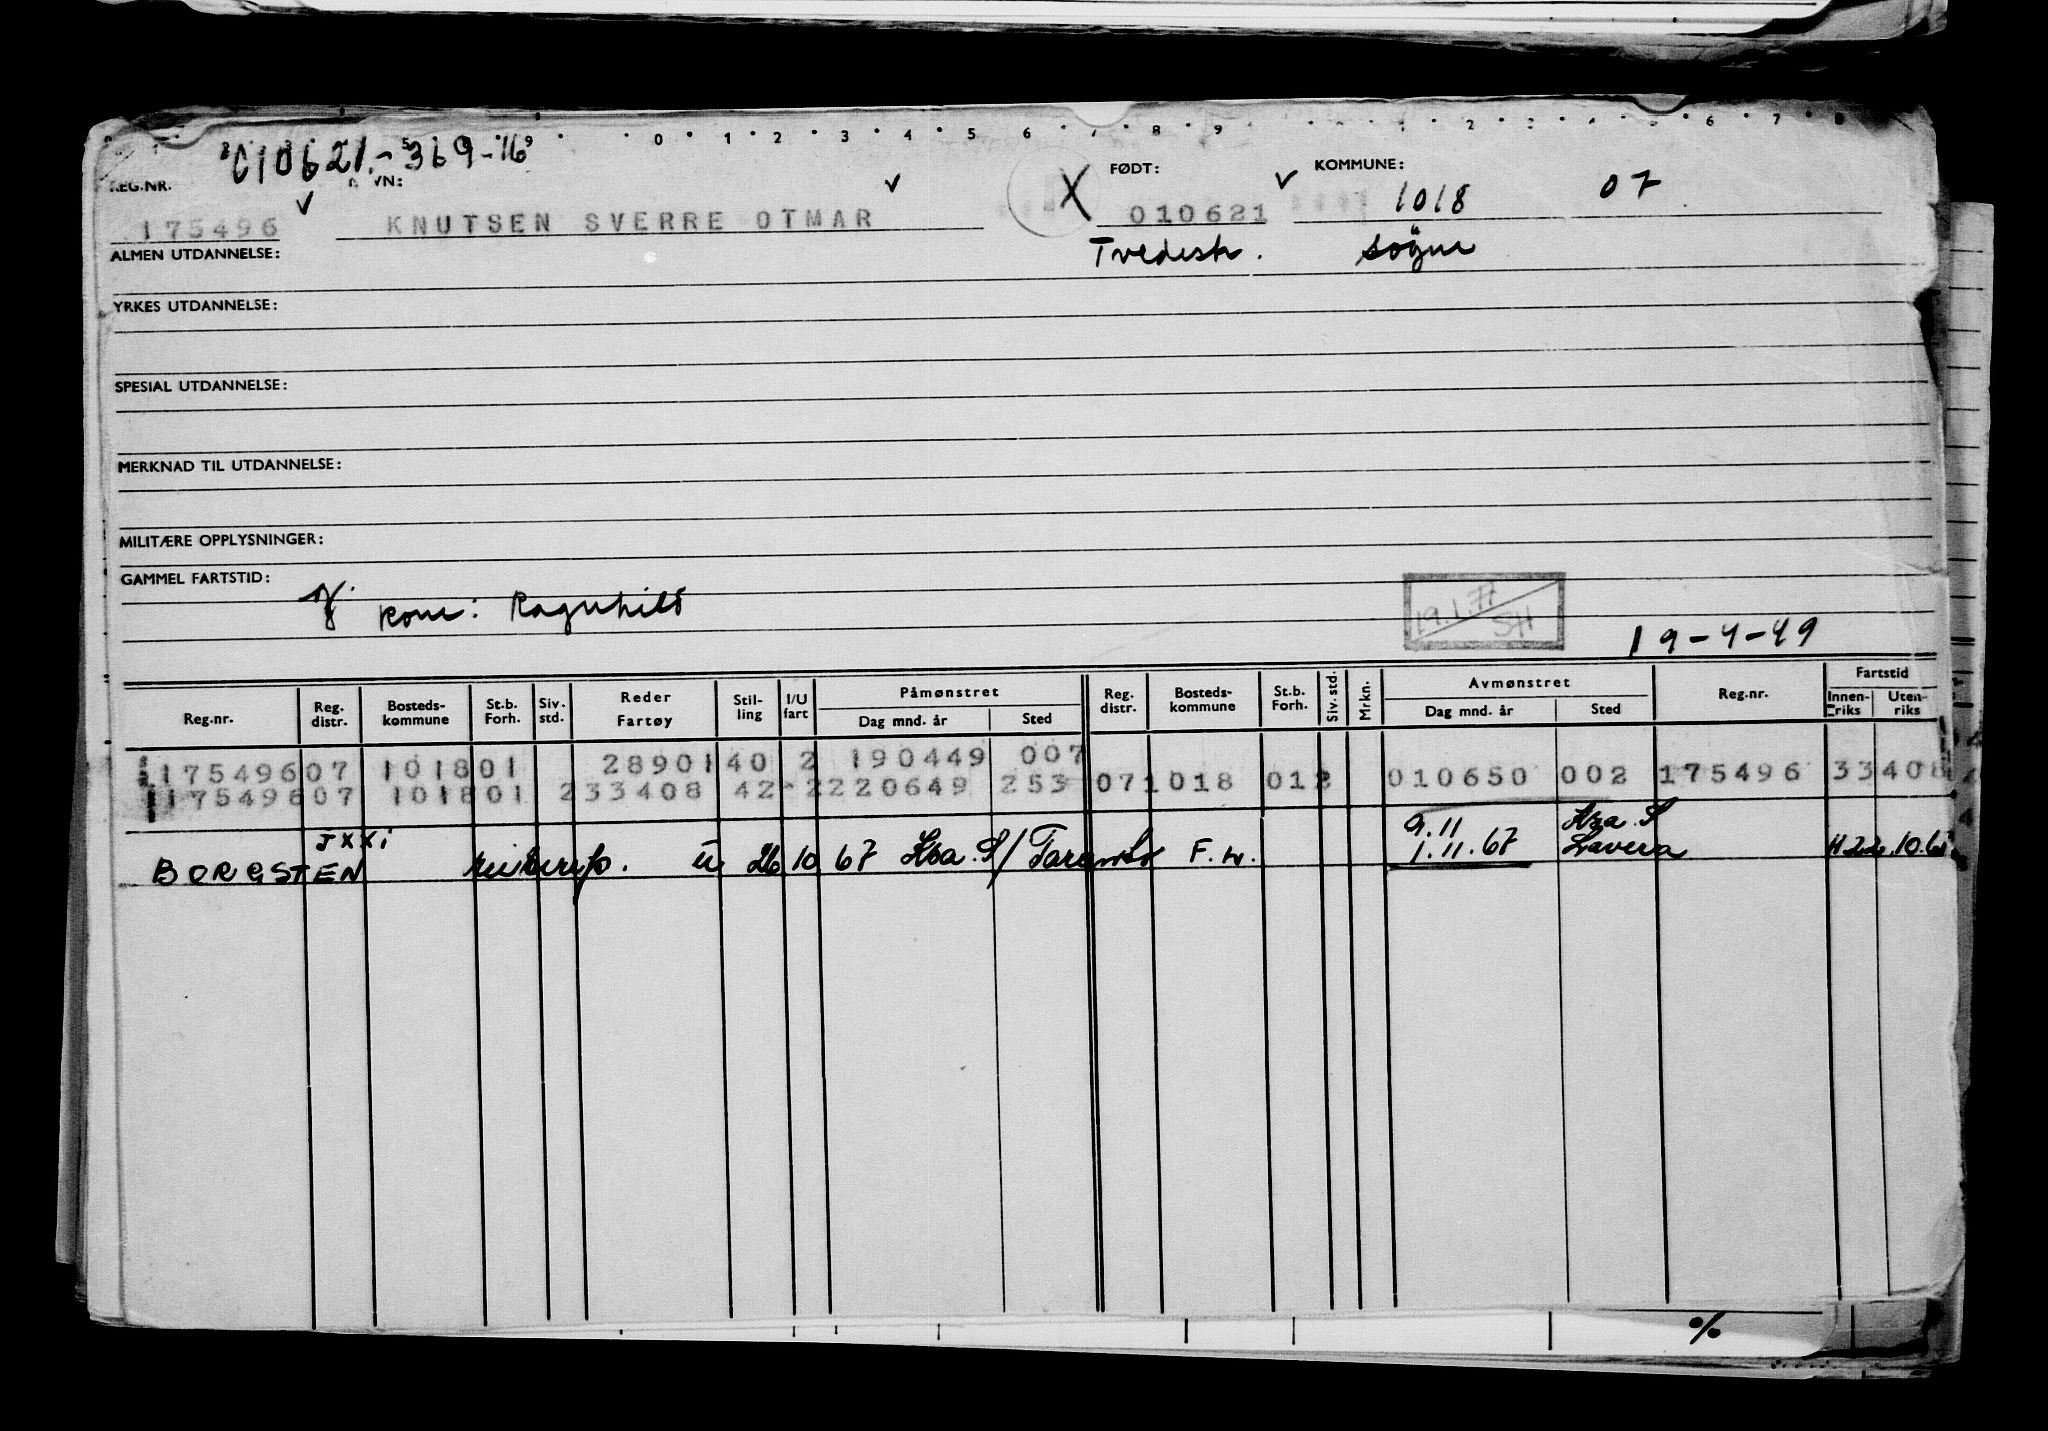 010621.-36919-16
REG.NR. NAVN: FØDT: KOMMUNE:
175496 KNUTSEN SVERRE OTMAR X 010621 1018 07
ALMEN UTDANNELSE: Tvedestr. Søgne
YRKES UTDANNELSE:
SPESIAL UTDANNELSE:
MERKNAD TIL UTDANNELSE:
MILITÆRE OPPLYSNINGER:
GAMMEL FARTSTID:
kone: Ragnhild
19.1.77
SH
19-4-49
Reg.nr. Reg. distr. Bosteds-kommune St.b. Forh. Siv. std. Reder Fartøy Stil-ling I/U fart Påmønstret Dag mnd. år Sted Reg. distr. Bosteds-kommune St.b. Forh. Siv. std. Mrkn. Avmønstret Dag mnd. år Sted Reg.nr. Fartstid Innen-riks Uten-riks
175496 07 1018 01 28901 40 2 190449 007
175496 07 1018 01 233408 42 2 220649 253 07 1018 012 010650 002 175496 33408
9.11 Kra. S
BORGSTEN u 26 10 67 Kra. S/ Taranto F.w. 1.11.67 Lavera 22.10.67
%